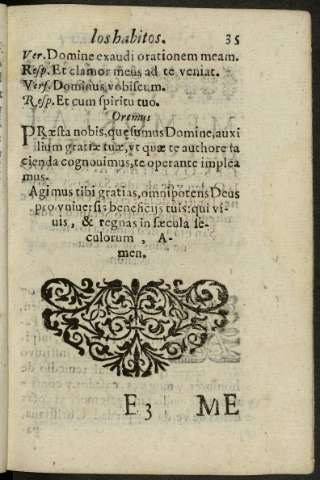 los habitos. 35
Ver. Domine exaudi orationem meam.
Resp. Et clamor meus ad te veniat.
Vers. Dominus vobiscum.
Resp. Et cum spiritu tuo.
Oremus
PRæsta nobis, quęsumus Domine, auxi
lium gratiæ tuæ, vt quæ te authore fa
cienda cognouimus, te operante implea
mus.
Agimus tibi gratias, omnipotens Deus
pro vniuersis beneficijs tuis: qui vi-
uis, & regnas in sæcula sę-
culorum, A-
men.
E3 ME